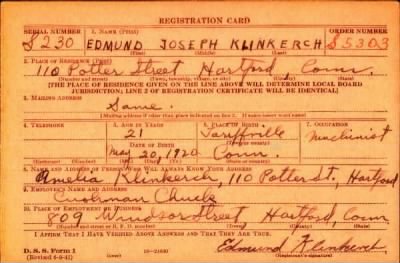 REGISTRATION CARD
SERIAL NUMBER 1. NAME (Print) ORDER NUMBER
S 230 EDMUND JOSEPH KLINKERCH S 5303
(First) (Middle) (Last)
2. PLACE OF RESIDENCE (Print)
110 Potter Street Hartford Conn.
(Number and street) (Town, township, village, or city) (County) (State)
[THE PLACE OF RESIDENCE GIVEN ON THE LINE ABOVE WILL DETERMINE LOCAL BOARD
JURISDICTION; LINE 2 OF REGISTRATION CERTIFICATE WILL BE IDENTICAL]
3. MAILING ADDRESS
Same.
[Mailing address if other than place indicated on line 2. If same insert word same]
4. TELEPHONE 5. AGE IN YEARS 6. PLACE OF BIRTH 7. OCCUPATION
21 Tariffville Machinist
DATE OF BIRTH (Town or county)
May 20, 1920 Conn
(Exchange) (Number) (Mo.) (Day) (Yr.) (State or country)
8. NAME AND ADDRESS OF PERSON WHO WILL ALWAYS KNOW YOUR ADDRESS
Amelia Klinkerch, 110 Potter St, Hartford
9. EMPLOYER'S NAME AND ADDRESS
Cushman Chuck
10. PLACE OF EMPLOYMENT OR BUSINESS
809 Windsor Street Hartford, Conn
(Number and street or R. F. D. number) (Town) (County) (State)
I AFFIRM THAT I HAVE VERIFIED ABOVE ANSWERS AND THAT THEY ARE TRUE.
D. S. S. Form 1 Edmund Klinkerch
(Revised 6-9-41) (Registrant's signature)